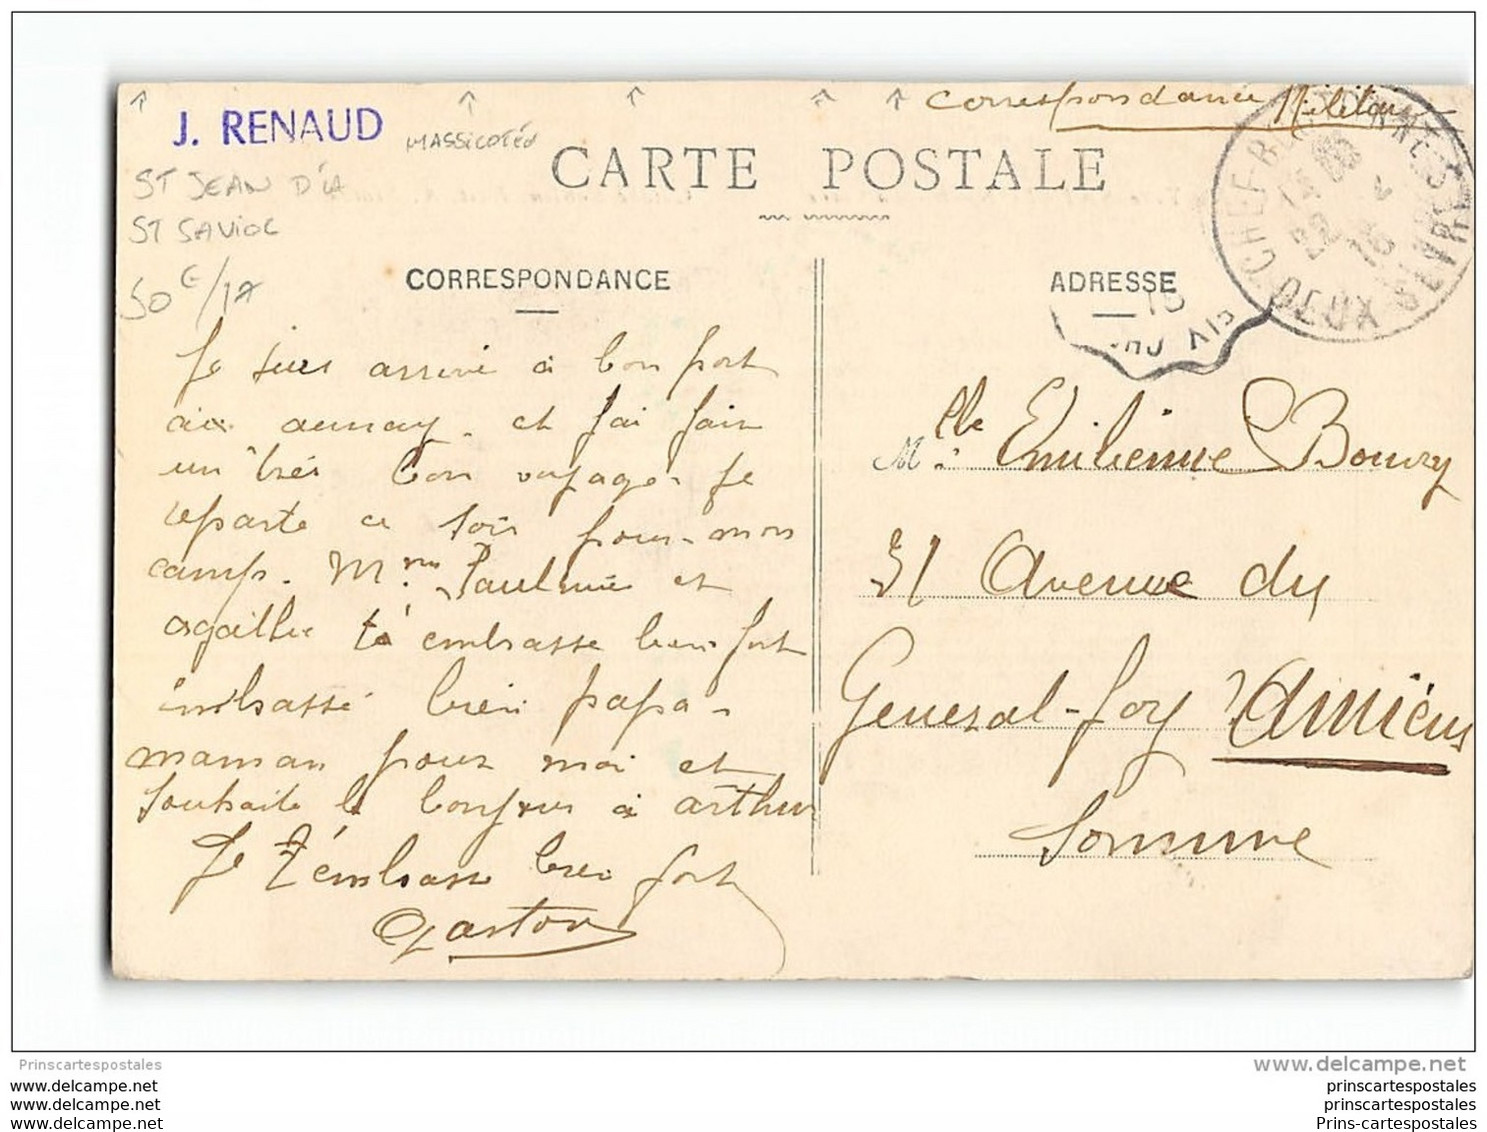 Correspondance Militaire
J. RENAUD
MASSICOTÉE
CARTE POSTALE
ST JEAN D'LA
ST SAVIOL
50€/17
CHEF-BOUTONNE
DEUX-SEVRES
22
16
CORRESPONDANCE
ADRESSE
Je suis arrivé à bon port
aunay. et j'ai fair
un très bon voyage. Je
reparte ce soir pour mon
camp. Mme Paulmié et
embrasse bien fort
embrassé bien papa
maman pour moi et
souhaite le bonjour à arthur
Je t'embrasse bien fort
Gaston
Melle Emilienne Bourry
31 Avenue du
General-foy Amiens
Somme
Prinscartespostales
www.delcampe.net
www.delcampe.net
www.delcampe.net
www.delcampe.net
prinscartespostales
prinscartespostales
Prins-cartespostales